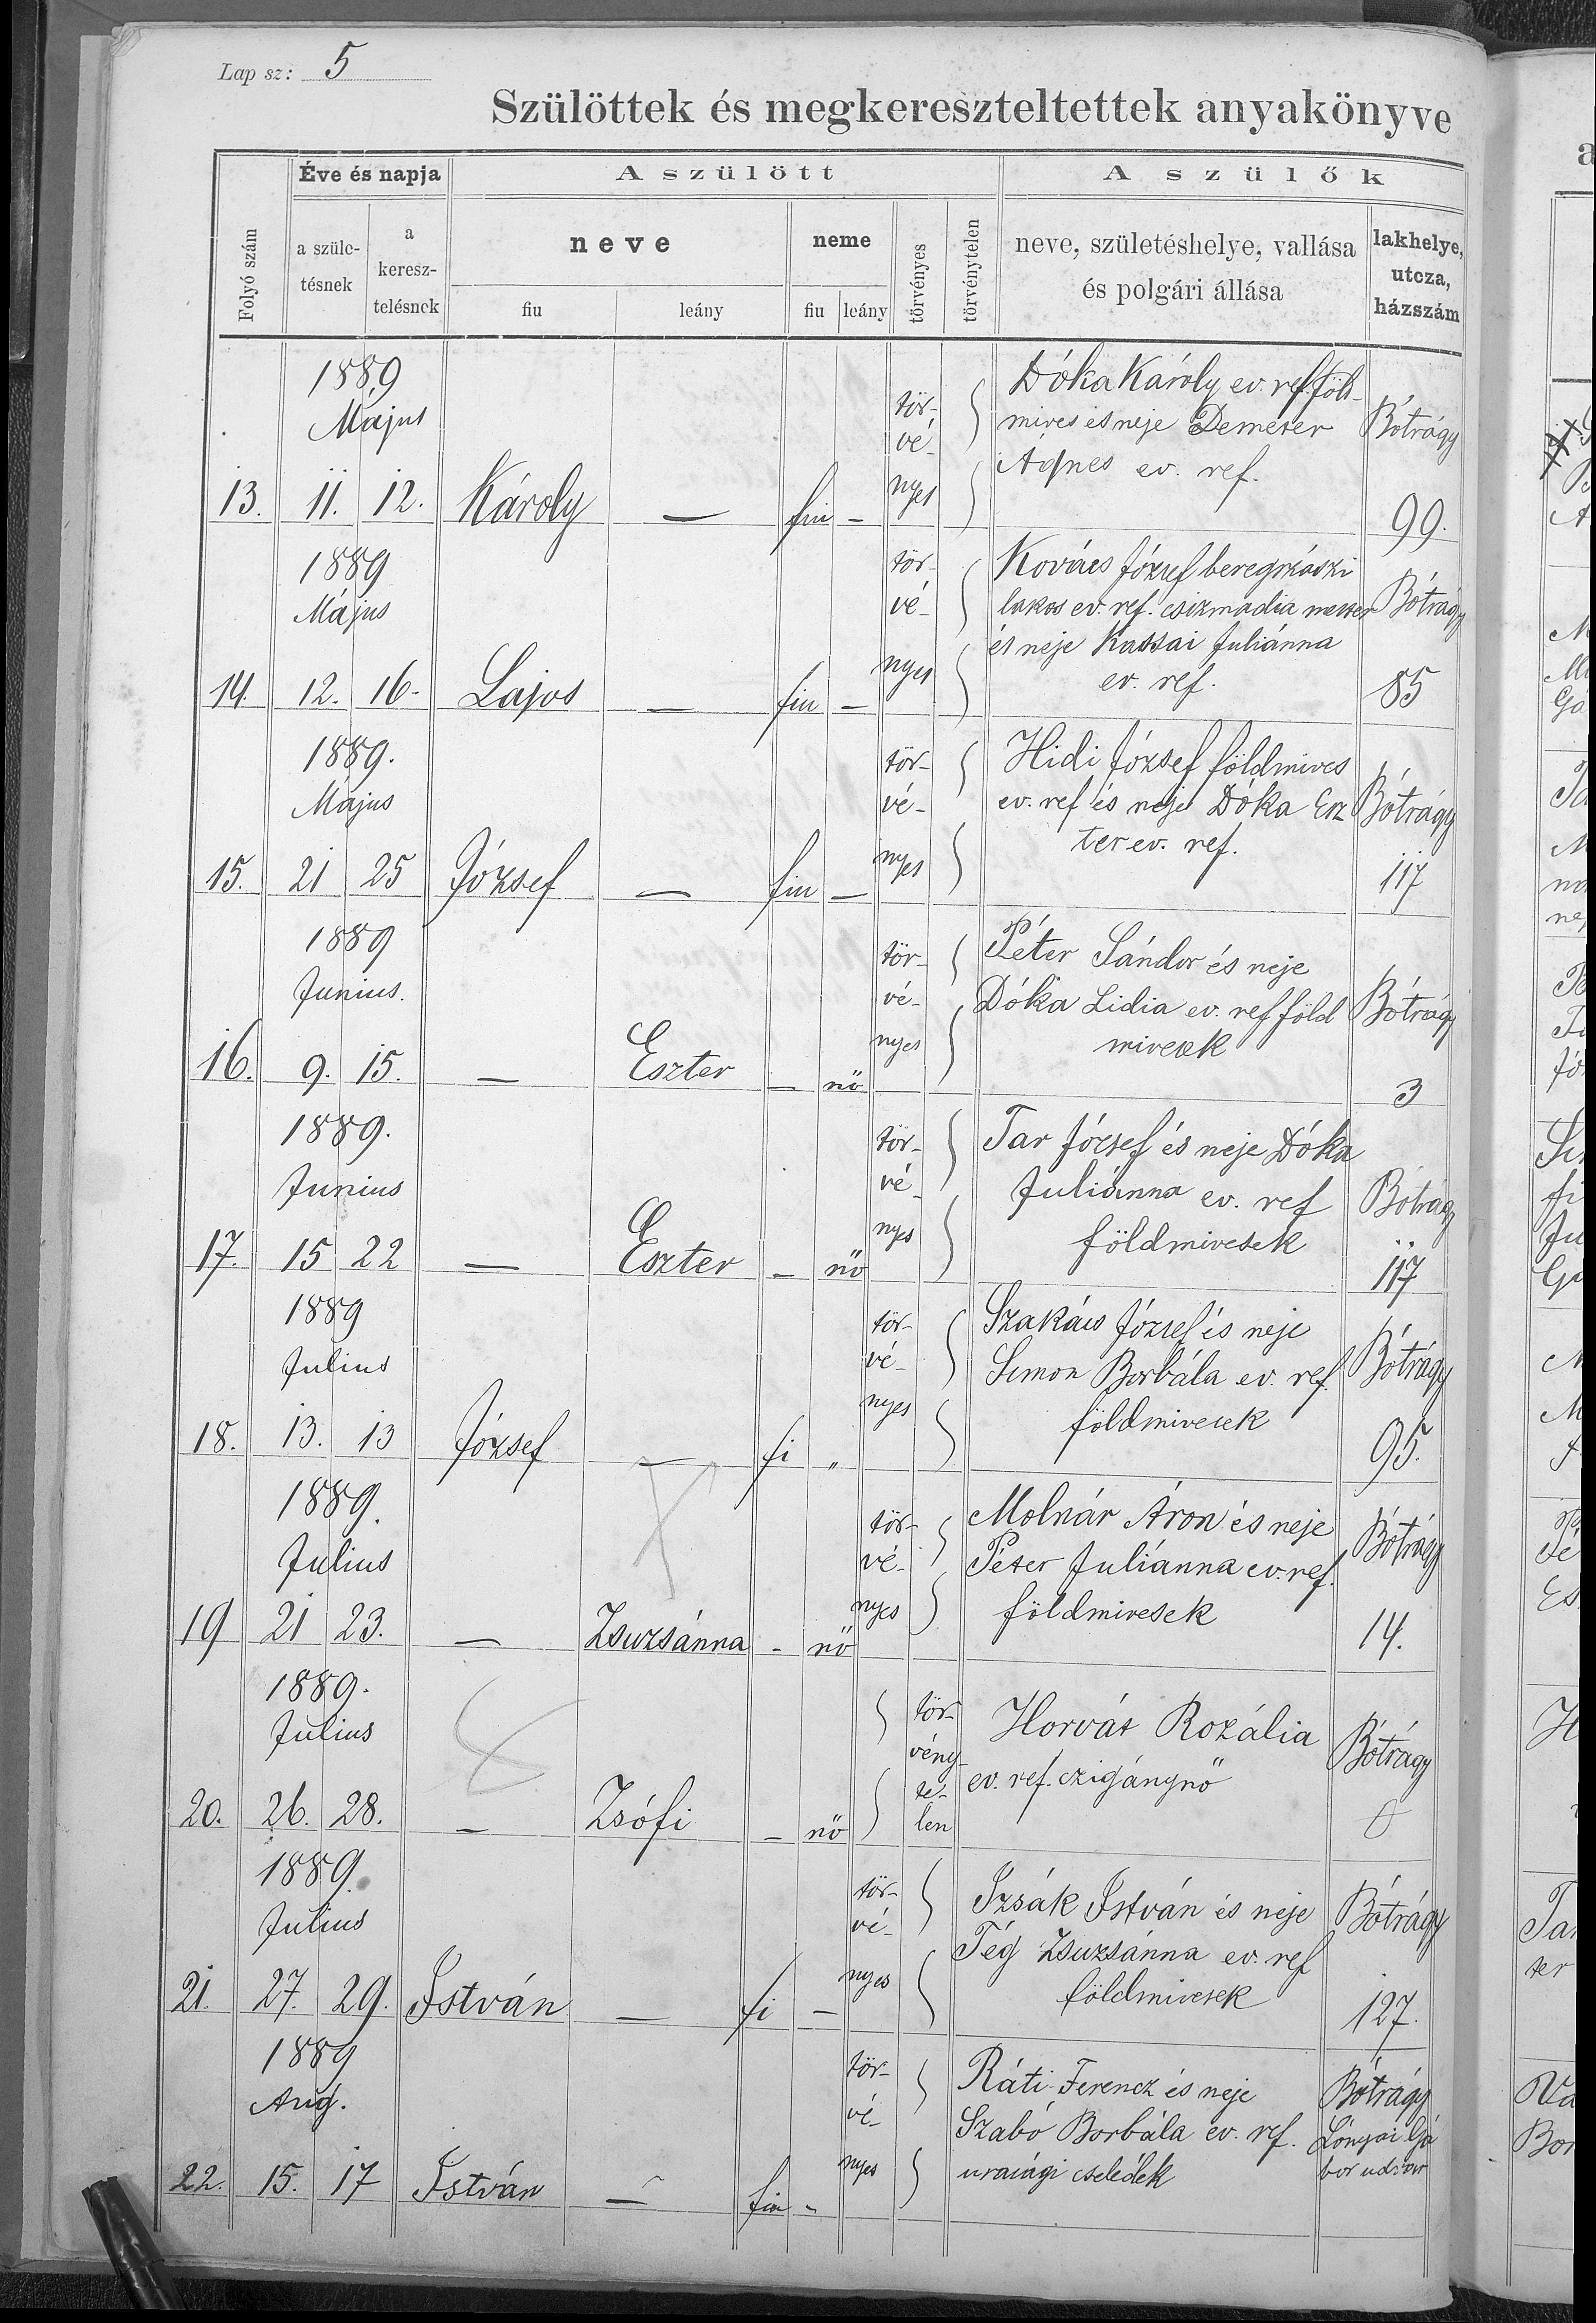 Lap sz: 5
Szülöttek és megkereszteltettek anyakönyve
Folyó szám
Éve és napja
a szüle-
tésnek
a
keresz-
telésnek
A szülött
neve
fiu leány
neme
fiu leány
törvényes
törvénytelen
A szülők
neve, születéshelye, vallása
és polgári állása
lakhelye,
utcza,
házszám
1889
Május
13. 11. 12. Károly — fiu –
tör-
vé-
nyes
Dóka Károly ev. ref. föld-
mives és neje Demeter
Ágnes ev. ref.
Bótrágy
99.
1889
Május
14. 12. 16- Lajos — fiu –
tör-
vé-
nyes
Kovács József beregszászi
lakos ev. ref. csizmadia mester
és neje Kassai Juliánna
ev. ref.
Bótrágy
85
1889.
Május
15. 21 25 József — fiu –
tör-
vé-
nyes
Hidi József földmives
ev. ref és neje Dóka Esz
ter ev. ref.
Bótrágy
117
1889
Junius.
16. 9. 15. — Eszter – nö
tör-
vé-
nyes
Péter Sándor és neje
Dóka Lidia ev. ref föld
mivesek
Bótrágy
3
1889.
Junius
17. 15 22 — Eszter – nö
tör-
vé-
nyes
Tar József és neje Dóka
Juliánna ev. ref
földmivesek
Bótrágy
117
1889
Julius
18. 13. 13 József — fi „
tör-
vé-
nyes
Szakács József és neje
Simon Borbála ev. ref.
földmivesek
Bótrágy
95.
1889.
Julius
19 21 23. — Zsuzsánna - nö
tör-
vé-
nyes
Molnár Áron és neje
Péter Juliánna ev. ref.
földmivesek
Bótrágy
14.
1889.
Julius
20. 26. 28. – Zsófi – nö
tör-
vény-
te-
len
Horvát Rozália
ev. ref. czigánynö
Bótrágy
1889.
Julius
21. 27. 29. István — fi –
tör-
vé-
nyes
Izsák István és neje
Tég Zsuzsánna ev. ref
földmivesek
Bótrágy
127.
1889
Aug.
22. 15. 17 István — fiu -
tör-
vé-
nyes
Ráti Ferencz és neje
Szabó Borbála ev. ref.
urasági cselédek
Bótrágy
Lónyai Gá
bor udvar